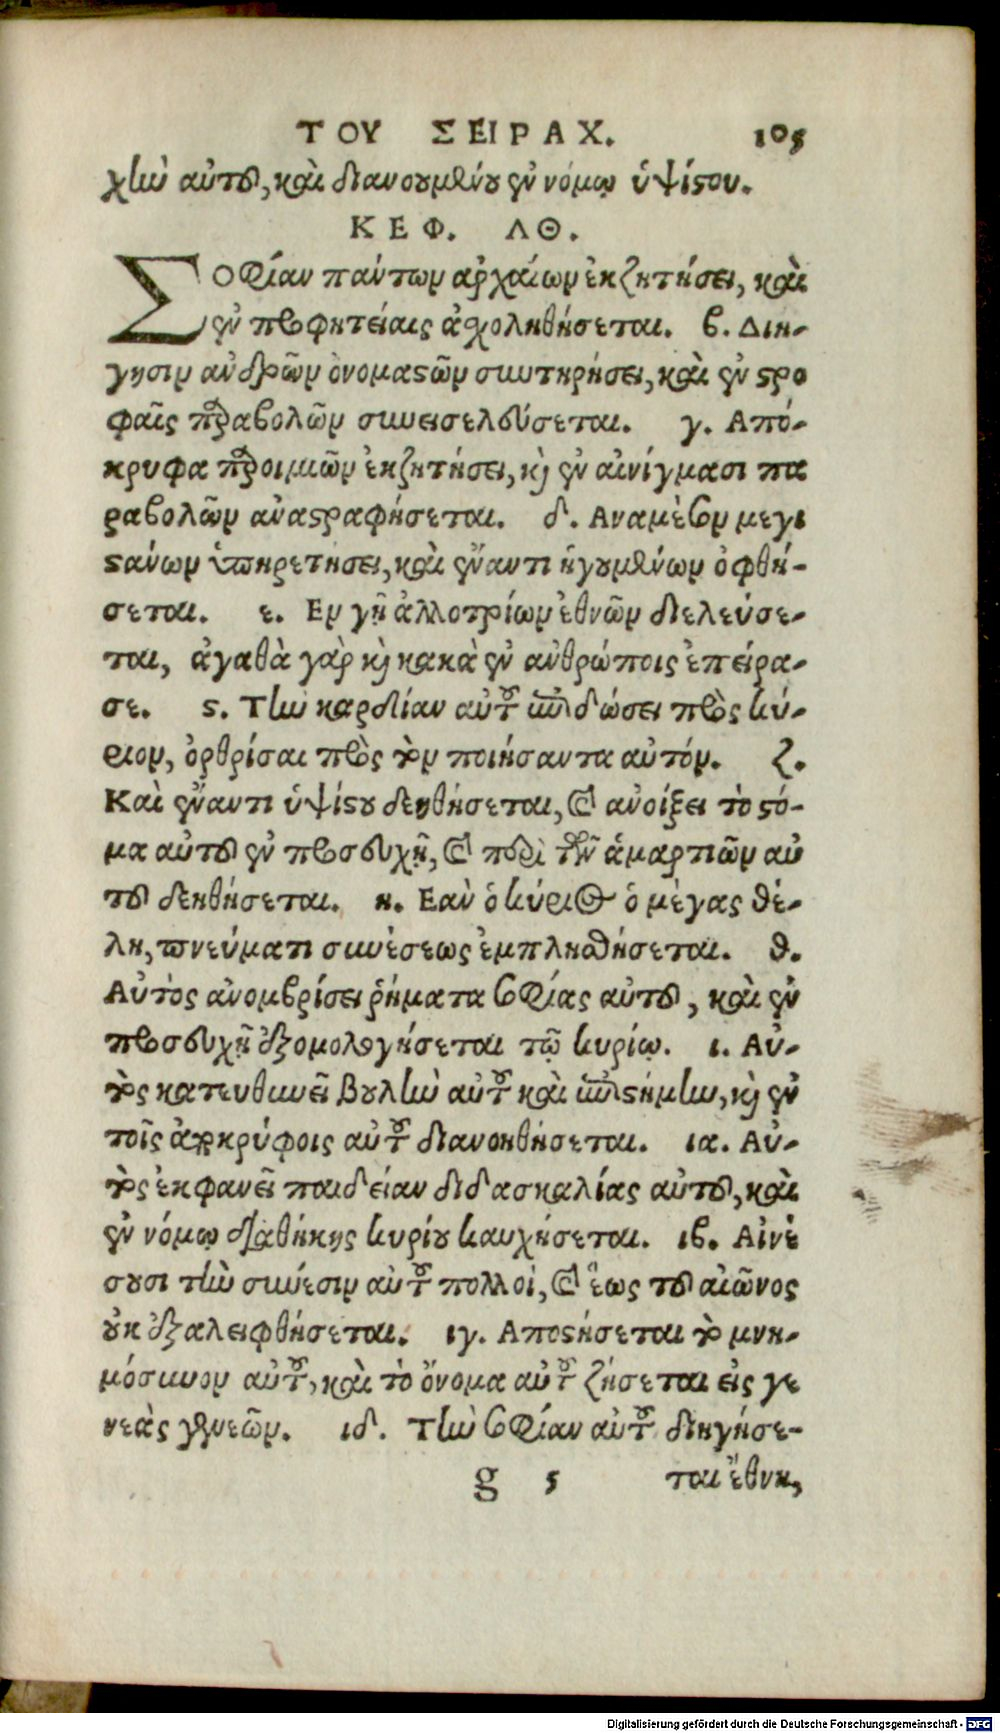 ΤΟΥ ΣΕΙΡΑΧ. 105
χὴν αὐτοῦ, καὶ διανουμένου ἐν νόμῳ ὑψίστου.
ΚΕΦ. ΛΘ.
ΣΟφίαν πάντων ἀρχαίων ἐκζητήσει, καὶ
ἐν προφητείαις ἀχοληθήσεται. β. Διη-
γησιν ἀνδρῶν ὀνομαστῶν συντηρήσει, καὶ ἐν στρο
φαῖς παραβολῶν συνεισελεύσεται. γ. Ἀπό-
κρυφα παροιμιῶν ἐκζητήσει, καὶ ἐν αἰνίγμασι πα
ραβολῶν ἀναστραφήσεται. δ. Ἀναμέσον μεγι
στάνων ὑπηρετήσει, καὶ ἔναντι ἡγουμένων ὀφθή-
σεται. ε. Ἐν γῇ ἀλλοτρίων ἐθνῶν διελεύσε-
ται, ἀγαθὰ γὰρ καὶ κακὰ ἐν ἀνθρώποις ἐπείρα-
σε. ϛ. Τὴν καρδίαν αὐτοῦ ἐπιδώσει πρὸς κύ-
ριον, ὀρθρίσαι πρὸς τὸν ποιήσαντα αὐτόν. ζ.
Καὶ ἔναντι ὑψίστου δεηθήσεται, καὶ ἀνοίξει τὸ στό-
μα αὐτοῦ ἐν προσευχῇ, καὶ περὶ τῶν ἁμαρτιῶν αὐ
τοῦ δεηθήσεται. η. Ἐὰν ὁ κύριος ὁ μέγας θέ-
λῃ, πνεύματι συνέσεως ἐμπλησθήσεται. θ.
Αὐτὸς ἀνομβρίσει ῥήματα σοφίας αὐτοῦ, καὶ ἐν
προσευχῇ ἐξομολογήσεται τῷ κυρίῳ. ι. Αὐ-
τὸς κατευθυνεῖ βουλὴν αὐτοῦ καὶ ἐπιστήμην, καὶ ἐν
τοῖς ἀποκρύφοις αὐτοῦ διανοηθήσεται. ια. Αὐ-
τὸς ἐκφανεῖ παιδείαν διδασκαλίας αὐτοῦ, καὶ
ἐν νόμῳ διαθήκης κυρίου καυχήσεται. ιβ. Αἰνέ
σουσι τὴν σύνεσιν αὐτοῦ πολλοὶ, καὶ ἕως τοῦ αἰῶνος
οὐκ ἐξαλειφθήσεται. ιγ. Ἀποστήσεται τὸ μνη-
μόσυνον αὐτοῦ, καὶ τὸ ὄνομα αὐτοῦ ζήσεται εἰς γε
νεὰς γενεῶν. ιδ. Τὴν σοφίαν αὐτοῦ διηγήσε-
g 5 ται ἔθνη,
Digitalisierung gefördert durch die Deutsche Forschungsgemeinschaft - DFG